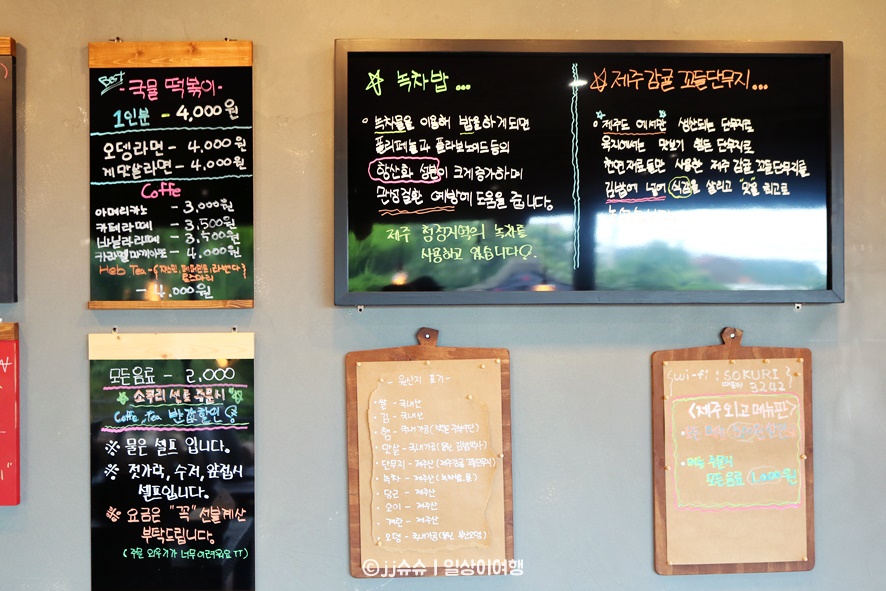 Best
-국물 떡볶이-
1인분 - 4,000원
오뎅라면 - 4,000원
게맛살라면 - 4,000원
Coffe
아메리카노 - 3,000원
카페라떼 - 3,500원
바닐라라떼 - 3,500원
카라멜마끼아또 - 4,000원
Heb Tea - (자스민, 페퍼민트, 라벤다
로즈마리)
- 4,000원
모든음료 - 2,000
소쿠리 세트 주문시
Coffe, Tea 반값할인
※ 물은 셀프 입니다.
※ 젓가락, 수저, 앞접시
셀프입니다.
※ 요금은 "꼭" 선불계산
부탁드립니다.
(주문 외우기가 너무 어려워요 TT)
☆ 녹차밥...
○ 녹차물을 이용해 밥을 하게되면
폴리페놀과 플라보노이드 등의
항산화 성분이 크게 증가하며
만성질환 예방에 도움을 줍니다.
제주 청정지역의 녹차를
사용하고 있습니다
☆ 제주감귤 꼬들단무지...
○ 제주도 에서만 생산되는 단무지로
육지에서는 맛보기 힘든 단무지로
천연재료들만 사용한 제주 감귤 꼬들단무지를
김밥에 넣어 식감을 살리고 "맛"을 최고로
- 원산지 표기 -
• 쌀 - 국내산
• 김 - 국내산
• 햄 - 국내가공
• 맛살 - 국내가공
• 단무지 - 제주산 (제주감귤 꼬들단무지)
• 녹차 - 제주산
• 당근 - 제주산
• 오이 - 제주산
• 계란 - 제주산
• 오뎅 - 국내가공
wi-fi : SOKURI
3242
<제주외고 메뉴판>
• 메뉴 주문시
모든음료 1,000원
©jj슈슈 | 일상이여행